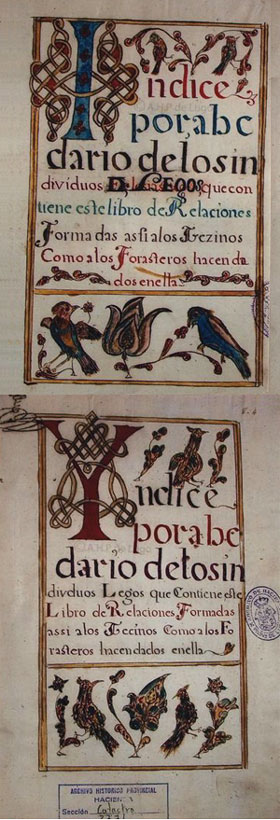 Indice
por abc
dario delosin
dividuos LEGOS que con
tiene este libro de Relaciones
Formadas assi alos Vezinos
Como alos Forasteros hacenda
dos enella.
Yndice
por abc
dario delosin
divduos Legos que Contiene este
Libro de Relaciones Formadas
assi alos Vecinos Como alos Fo
rasteros hacendados enella
ARCHIVO HISTORICO PROVINCIAL
HACIENDA
Sección Catastro